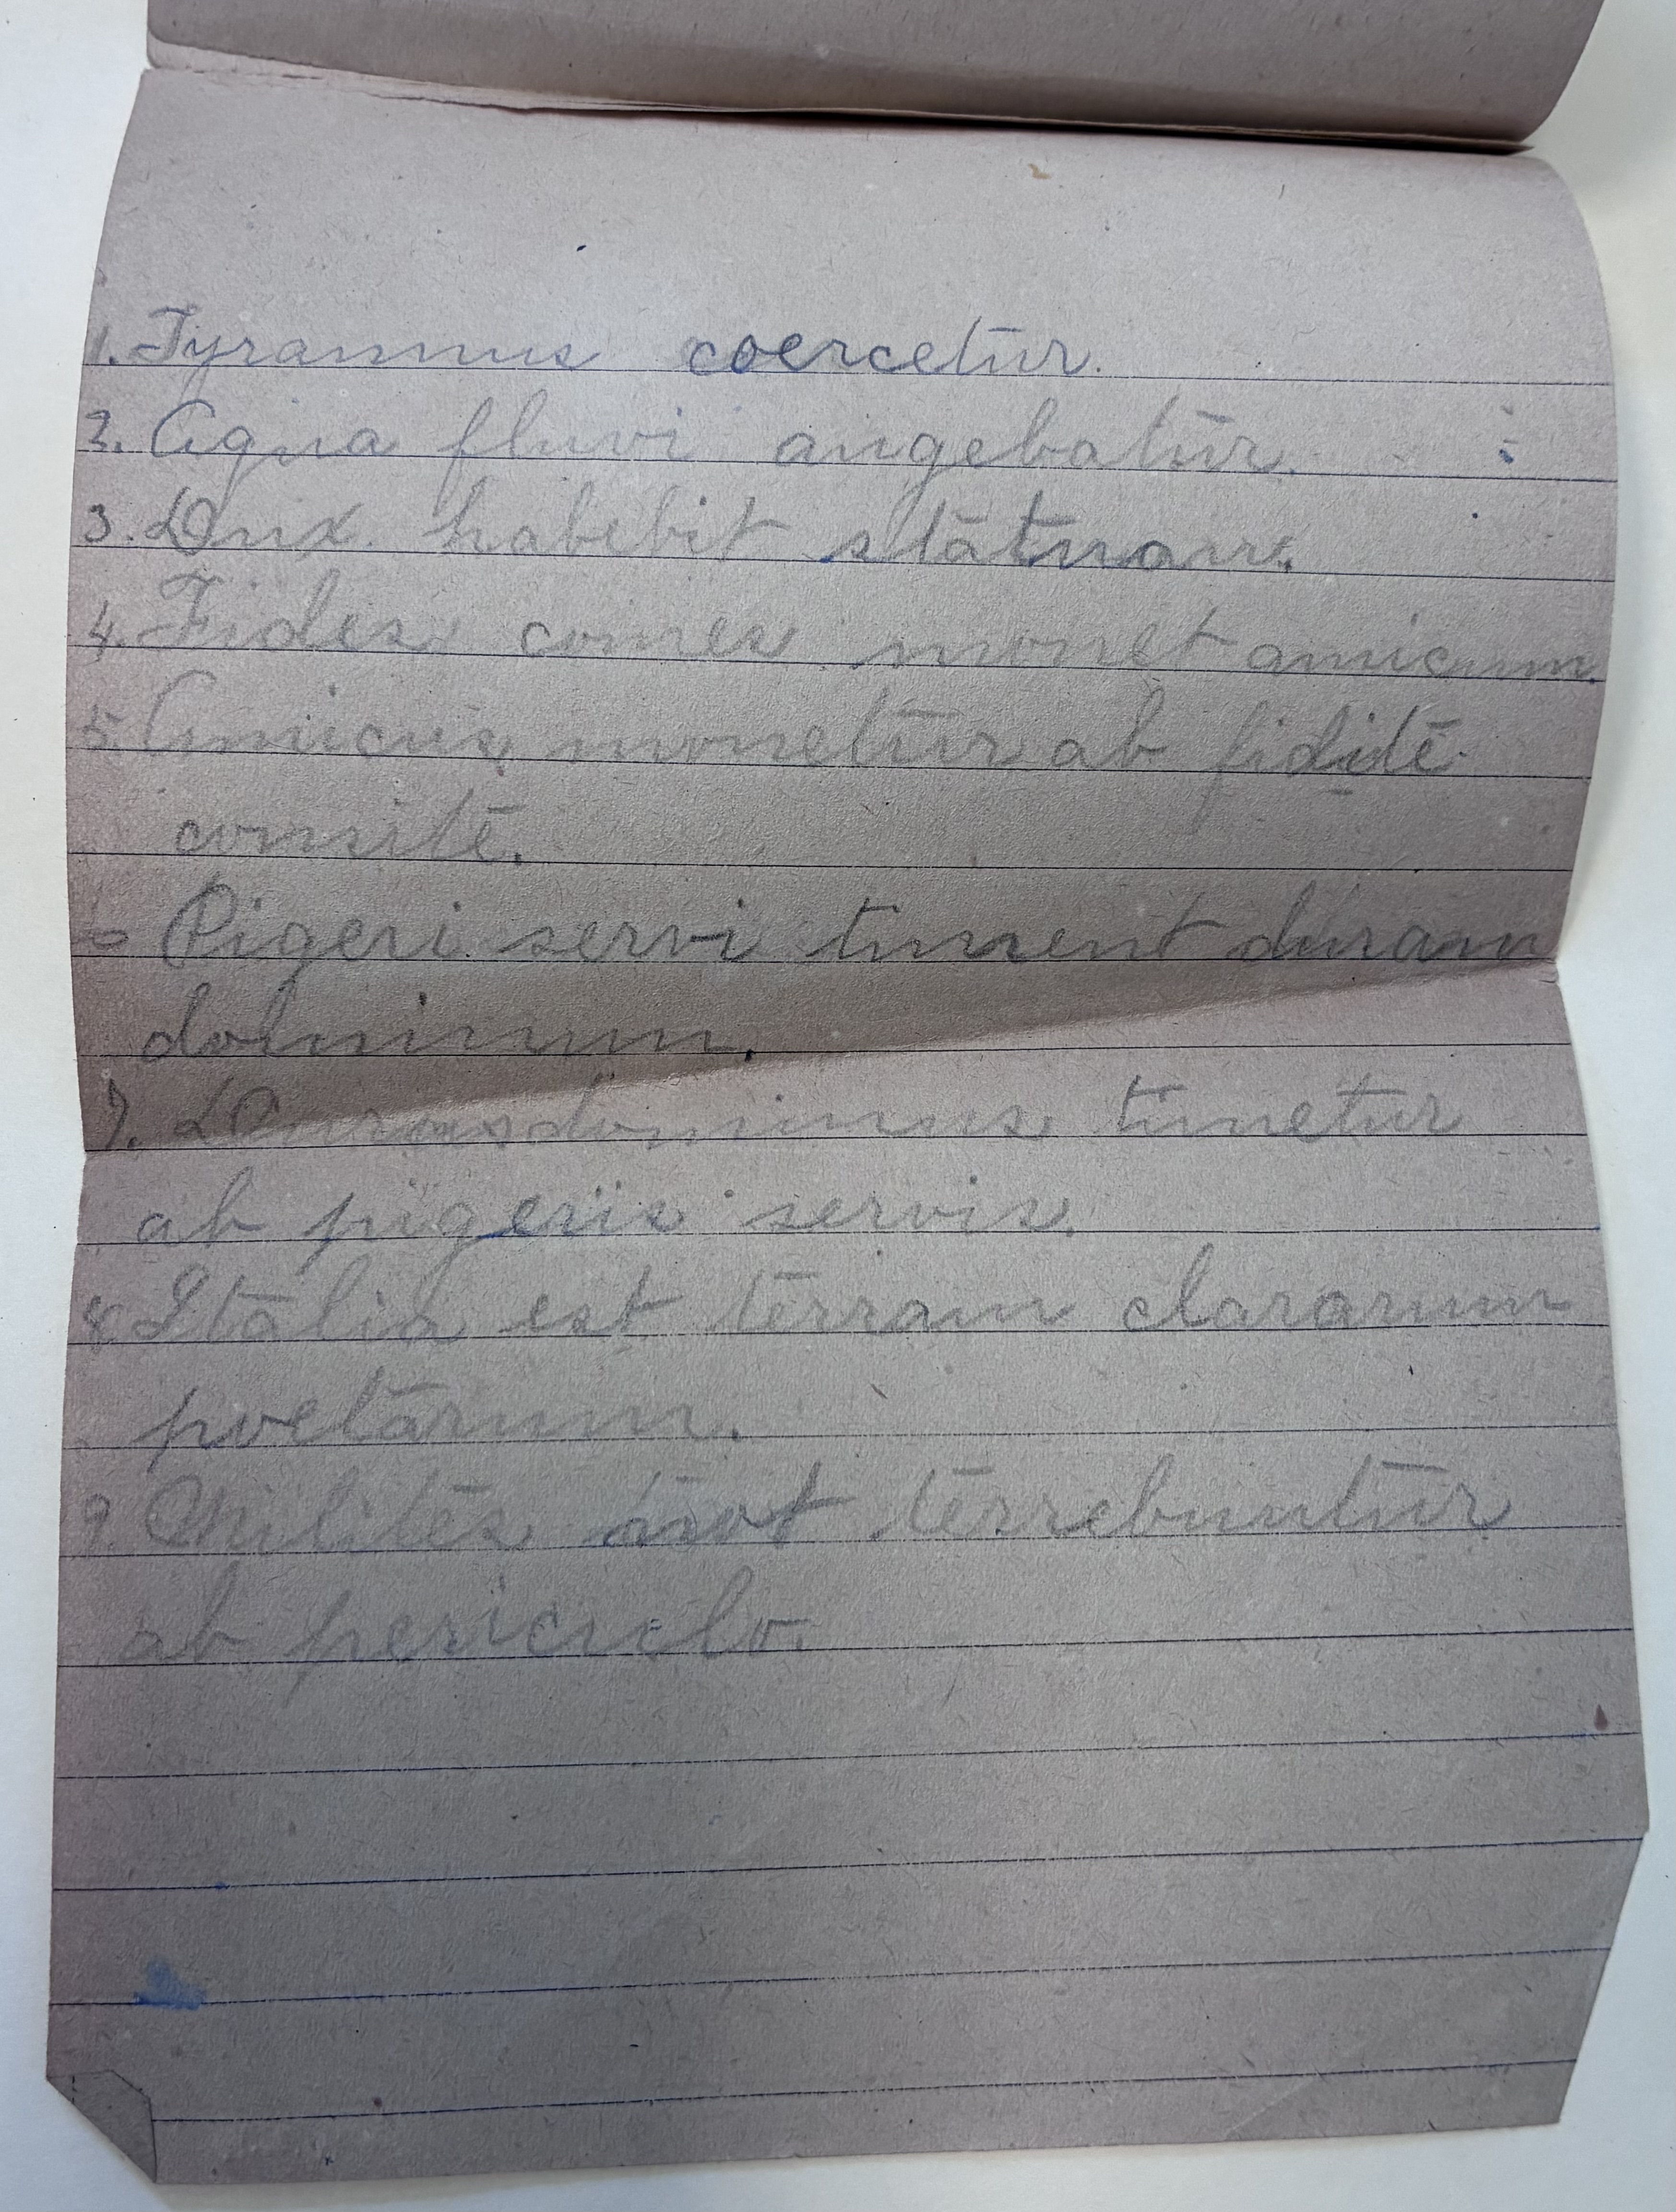 1. Tyrannus coercetur.
2. Aqua fluvi augebatūr.
3. Dux habebit stātuam.
4. Fides comes monet amicum.
5. Amicus monetūr ab fiditē
comitē.
6 Pigeri servi timent duram
dominum.
7. Durus dominus timetur
ab pigeris servis.
8 Itālia est tērram clararum
poetārum.
9. Militēs not tērrebuntūr
ab periculo.